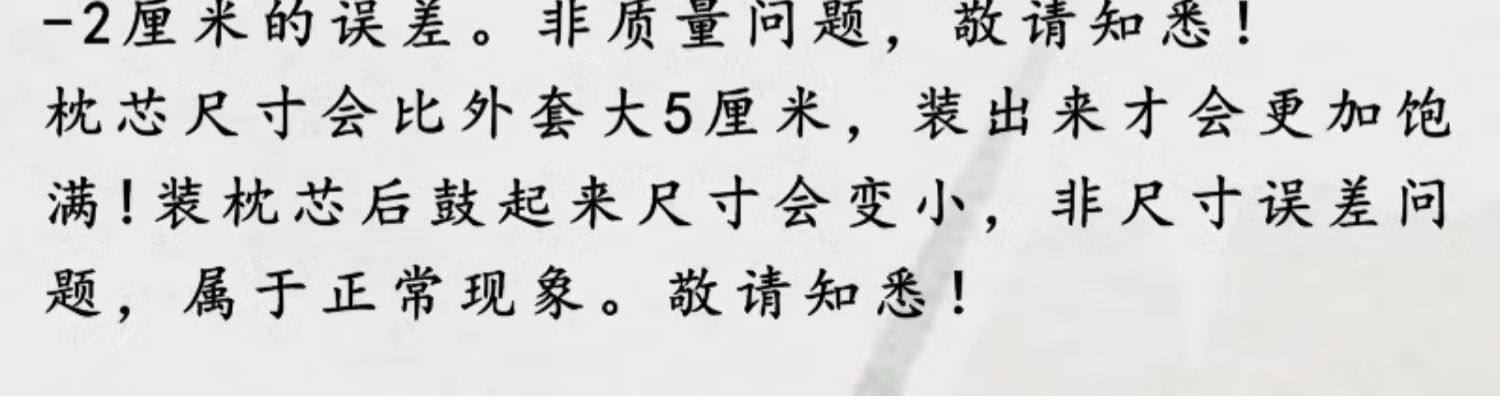 -2厘米的误差。非质量问题，敬请知悉！
枕芯尺寸会比外套大5厘米，装出来才会更加饱
满！装枕芯后鼓起来尺寸会变小，非尺寸误差问
题，属于正常现象。敬请知悉！